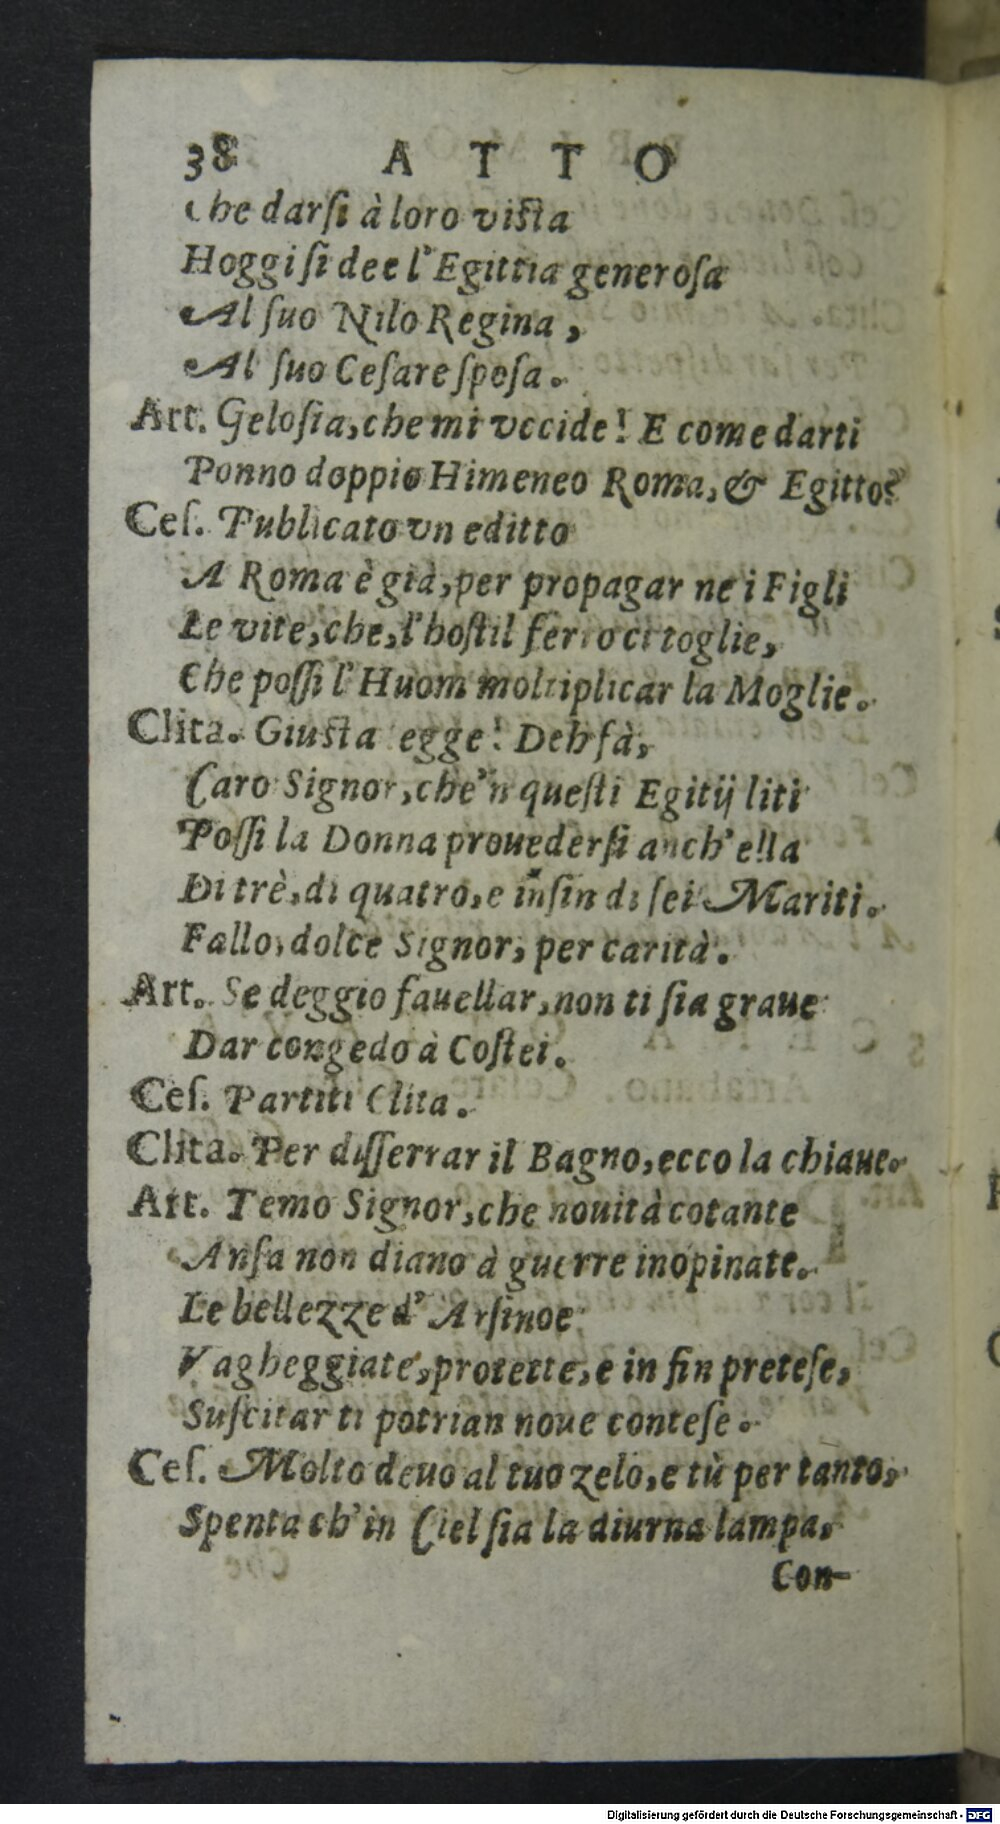 38 ATTO
Che darſi à loro viſta
Hoggi ſi dee l'Egittia generoſa
Al ſuo Nilo Regina,
Al ſuo Ceſare ſpoſa.
Art. Geloſia, che mi vccide! E come darti
Ponno doppio Himeneo Roma, & Egitto?
Ceſ. Publicato vn editto
A Roma è già, per propagar ne i Figli
Le vite, che, l'hoſtil ferro ci toglie,
Che poſſi l'Huom moltiplicar la Moglie.
Clita. Giuſta legge! Deh fà,
Caro Signor, che'n queſti Egitij liti
Poſſi la Donna prouederſi anch'ella
Di trè, di quatro, e inſin di ſei Mariti.
Fallo, dolce Signor, per carità.
Art. Se deggio fauellar, non ti ſia graue
Dar congedo à Coſtei.
Ceſ. Partiti Clita.
Clita. Per diſſerrar il Bagno, ecco la chiaue.
Art. Temo Signor, che nouità cotante
Anſa non diano à guerre inopinate.
Le bellezze d'Arſinoe
Vagheggiate, protette, e in fin preteſe,
Suſcitar ti potrian noue conteſe.
Ceſ. Molto deuo al tuo zelo, e tù per tanto,
Spenta ch'in Ciel ſia la diurna lampa,
Con-
Digitalisierung gefördert durch die Deutsche Forschungsgemeinschaft - DFG